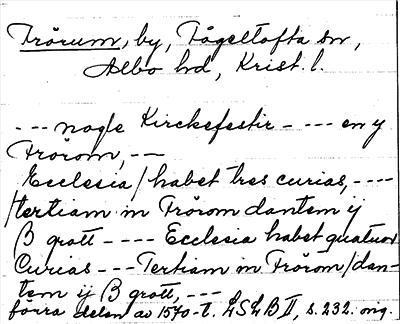 Frörum, by, Fågeltofta sn,
Albo hd, Krist. l.
--- nogle Kirckefestir - --- en y
Frörom, --
Ecclesia / habet tres curias, ----
/ tertiam in Frörom dantem ij
β grott ---- Ecclesia habet quatuor
Curias --- Tertiam in Frörom / dan-
tem ij β grott, ---
förra delen av 1570-t. LSLB II, s. 232. orig.